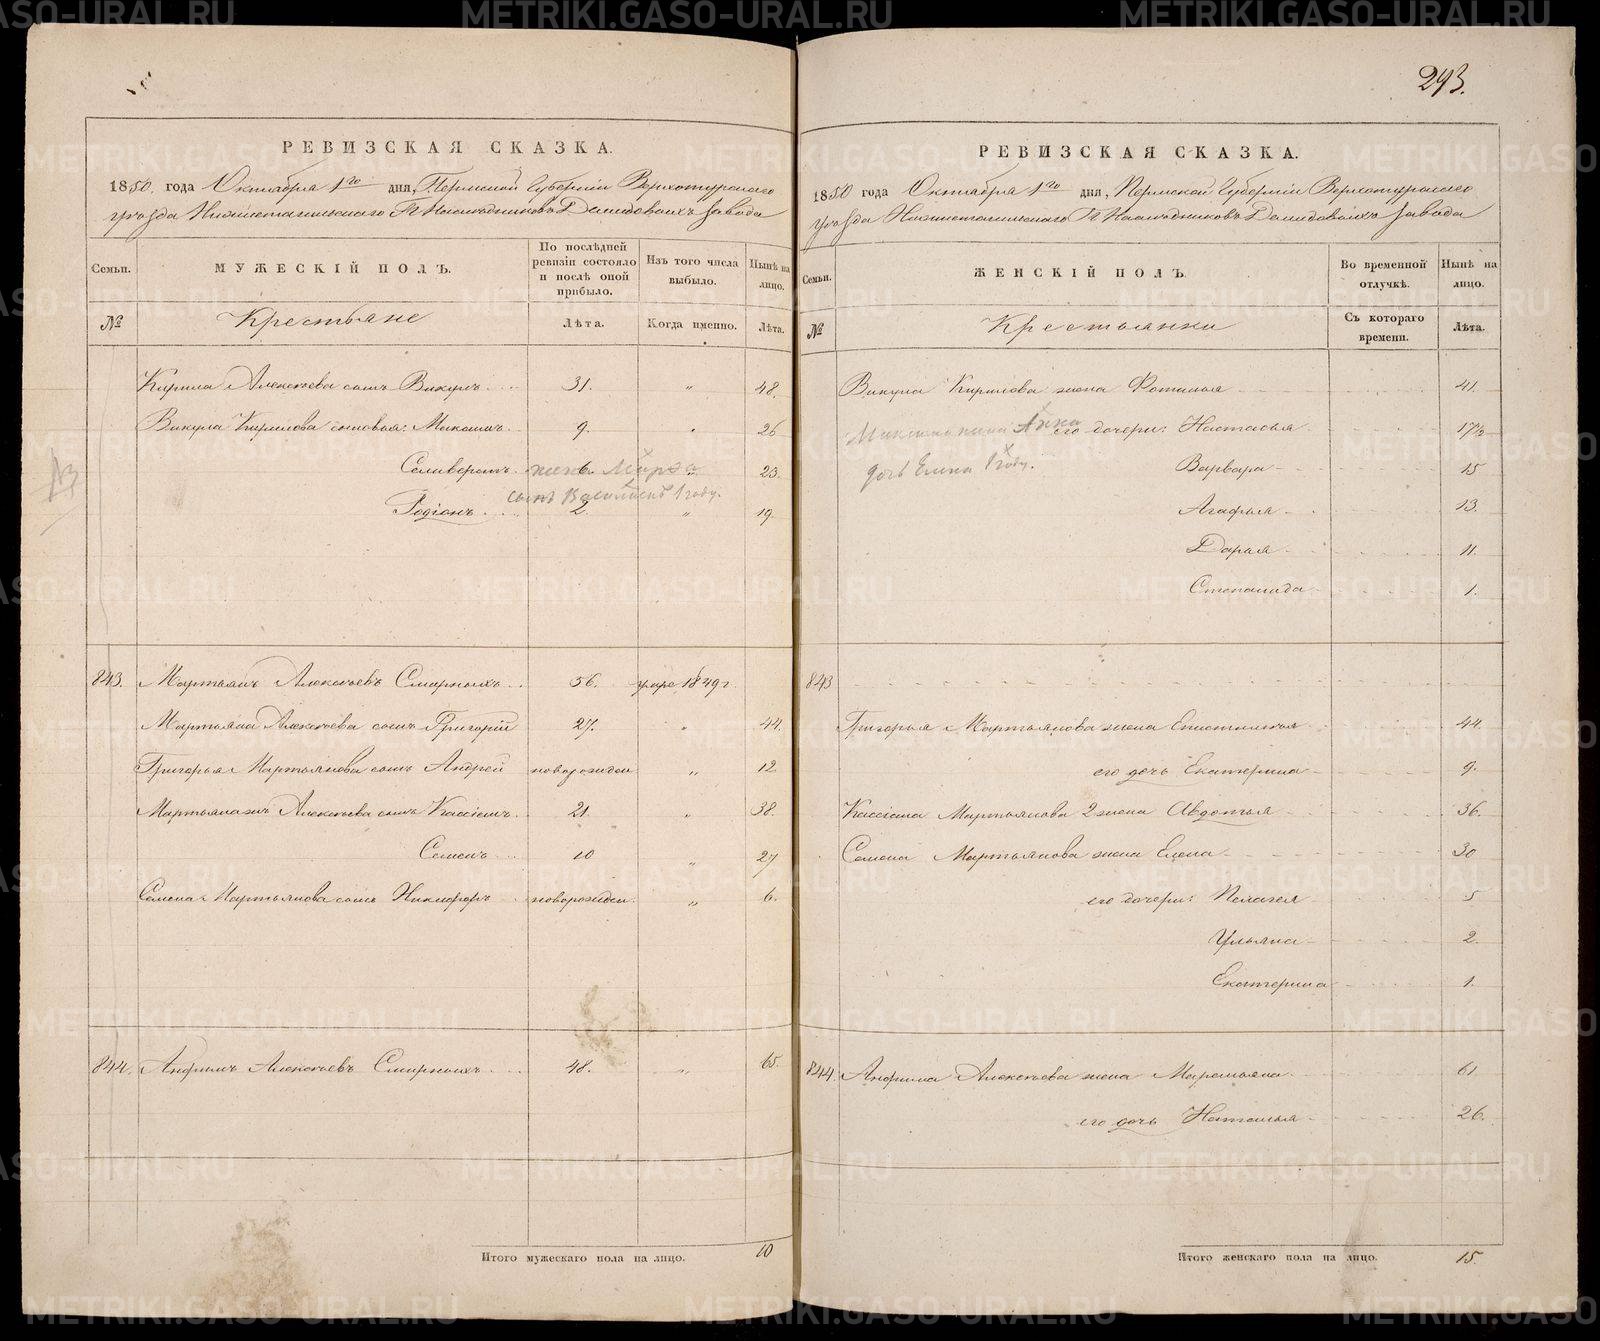 293.
РЕВИЗСКАЯ СКАЗКА.
1850. года Октября 1го дня, Пермской Губернiи Верхотурскаго
уѣзда Нижнетагильскаго Гг Наслѣдниковъ Демидовыхъ завода
Семьи. МУЖЕСКIЙ ПОЛЪ. По послѣдней ревизiи состояло и послѣ оной прибыло. Изъ того числа выбыло. Нынѣ на лицо.
№ Крестьяне Лѣта. Когда именно. Лѣта.
Кирила Алексѣева сынъ Викулъ 31. " 48.
Викула Кирилова сыновья: 9. " 26
Селиверстъ 6. " 23
жена Марѳа
сынъ Василiй 1 году.
Родiонъ 2. " 19
843. Мартьянъ Алексѣевъ Смирныхъ 56. умре 1849 г.
Мартьяна Алексѣева сынъ Григорiй 27. " 44.
Григорья Мартьянова сынъ Андрей новорожден " 12
Мартьяна Алексѣева сынъ Кассiанъ 21. " 38.
Семенъ 10 " 27
Семена Мартьянова сынъ Никифоръ новорожден. " 6.
844. Анфимъ Алексѣевъ Смирныхъ 48. " 65
Итого мужескаго пола на лицо. 10
РЕВИЗСКАЯ СКАЗКА.
1850 года Октября 1го дня, Пермской Губернiи Верхотурскаго
уѣзда Нижнетагильскаго Гг Наслѣдниковъ Демидовыхъ завода
Семьи. ЖЕНСКIЙ ПОЛЪ. Во временной отлучкѣ. Нынѣ на лицо.
№ Крестьянки Съ котораго времени. Лѣта.
Викула Кирилова жена Фотинья 41.
Анна
его дочери: Настасья 17½
дочь Елена 1 году. Варвара 15
Агафья 13.
Дарья 11.
Степанида 1.
843
Григорья Мартьянова жена 44.
его дочь Екатерина 9.
Кассiана Мартьянова 2 жена Авдотья 36.
Семена Мартьянова жена Елена 30
его дочери: Пелагея 5
Ульяна 2.
Екатерина 1.
844. Анфима Алексѣева жена Маремьяна 61
его дочь Наталья 26.
Итого женскаго пола на лицо. 15.
METRIKI.GASO-URAL.RU